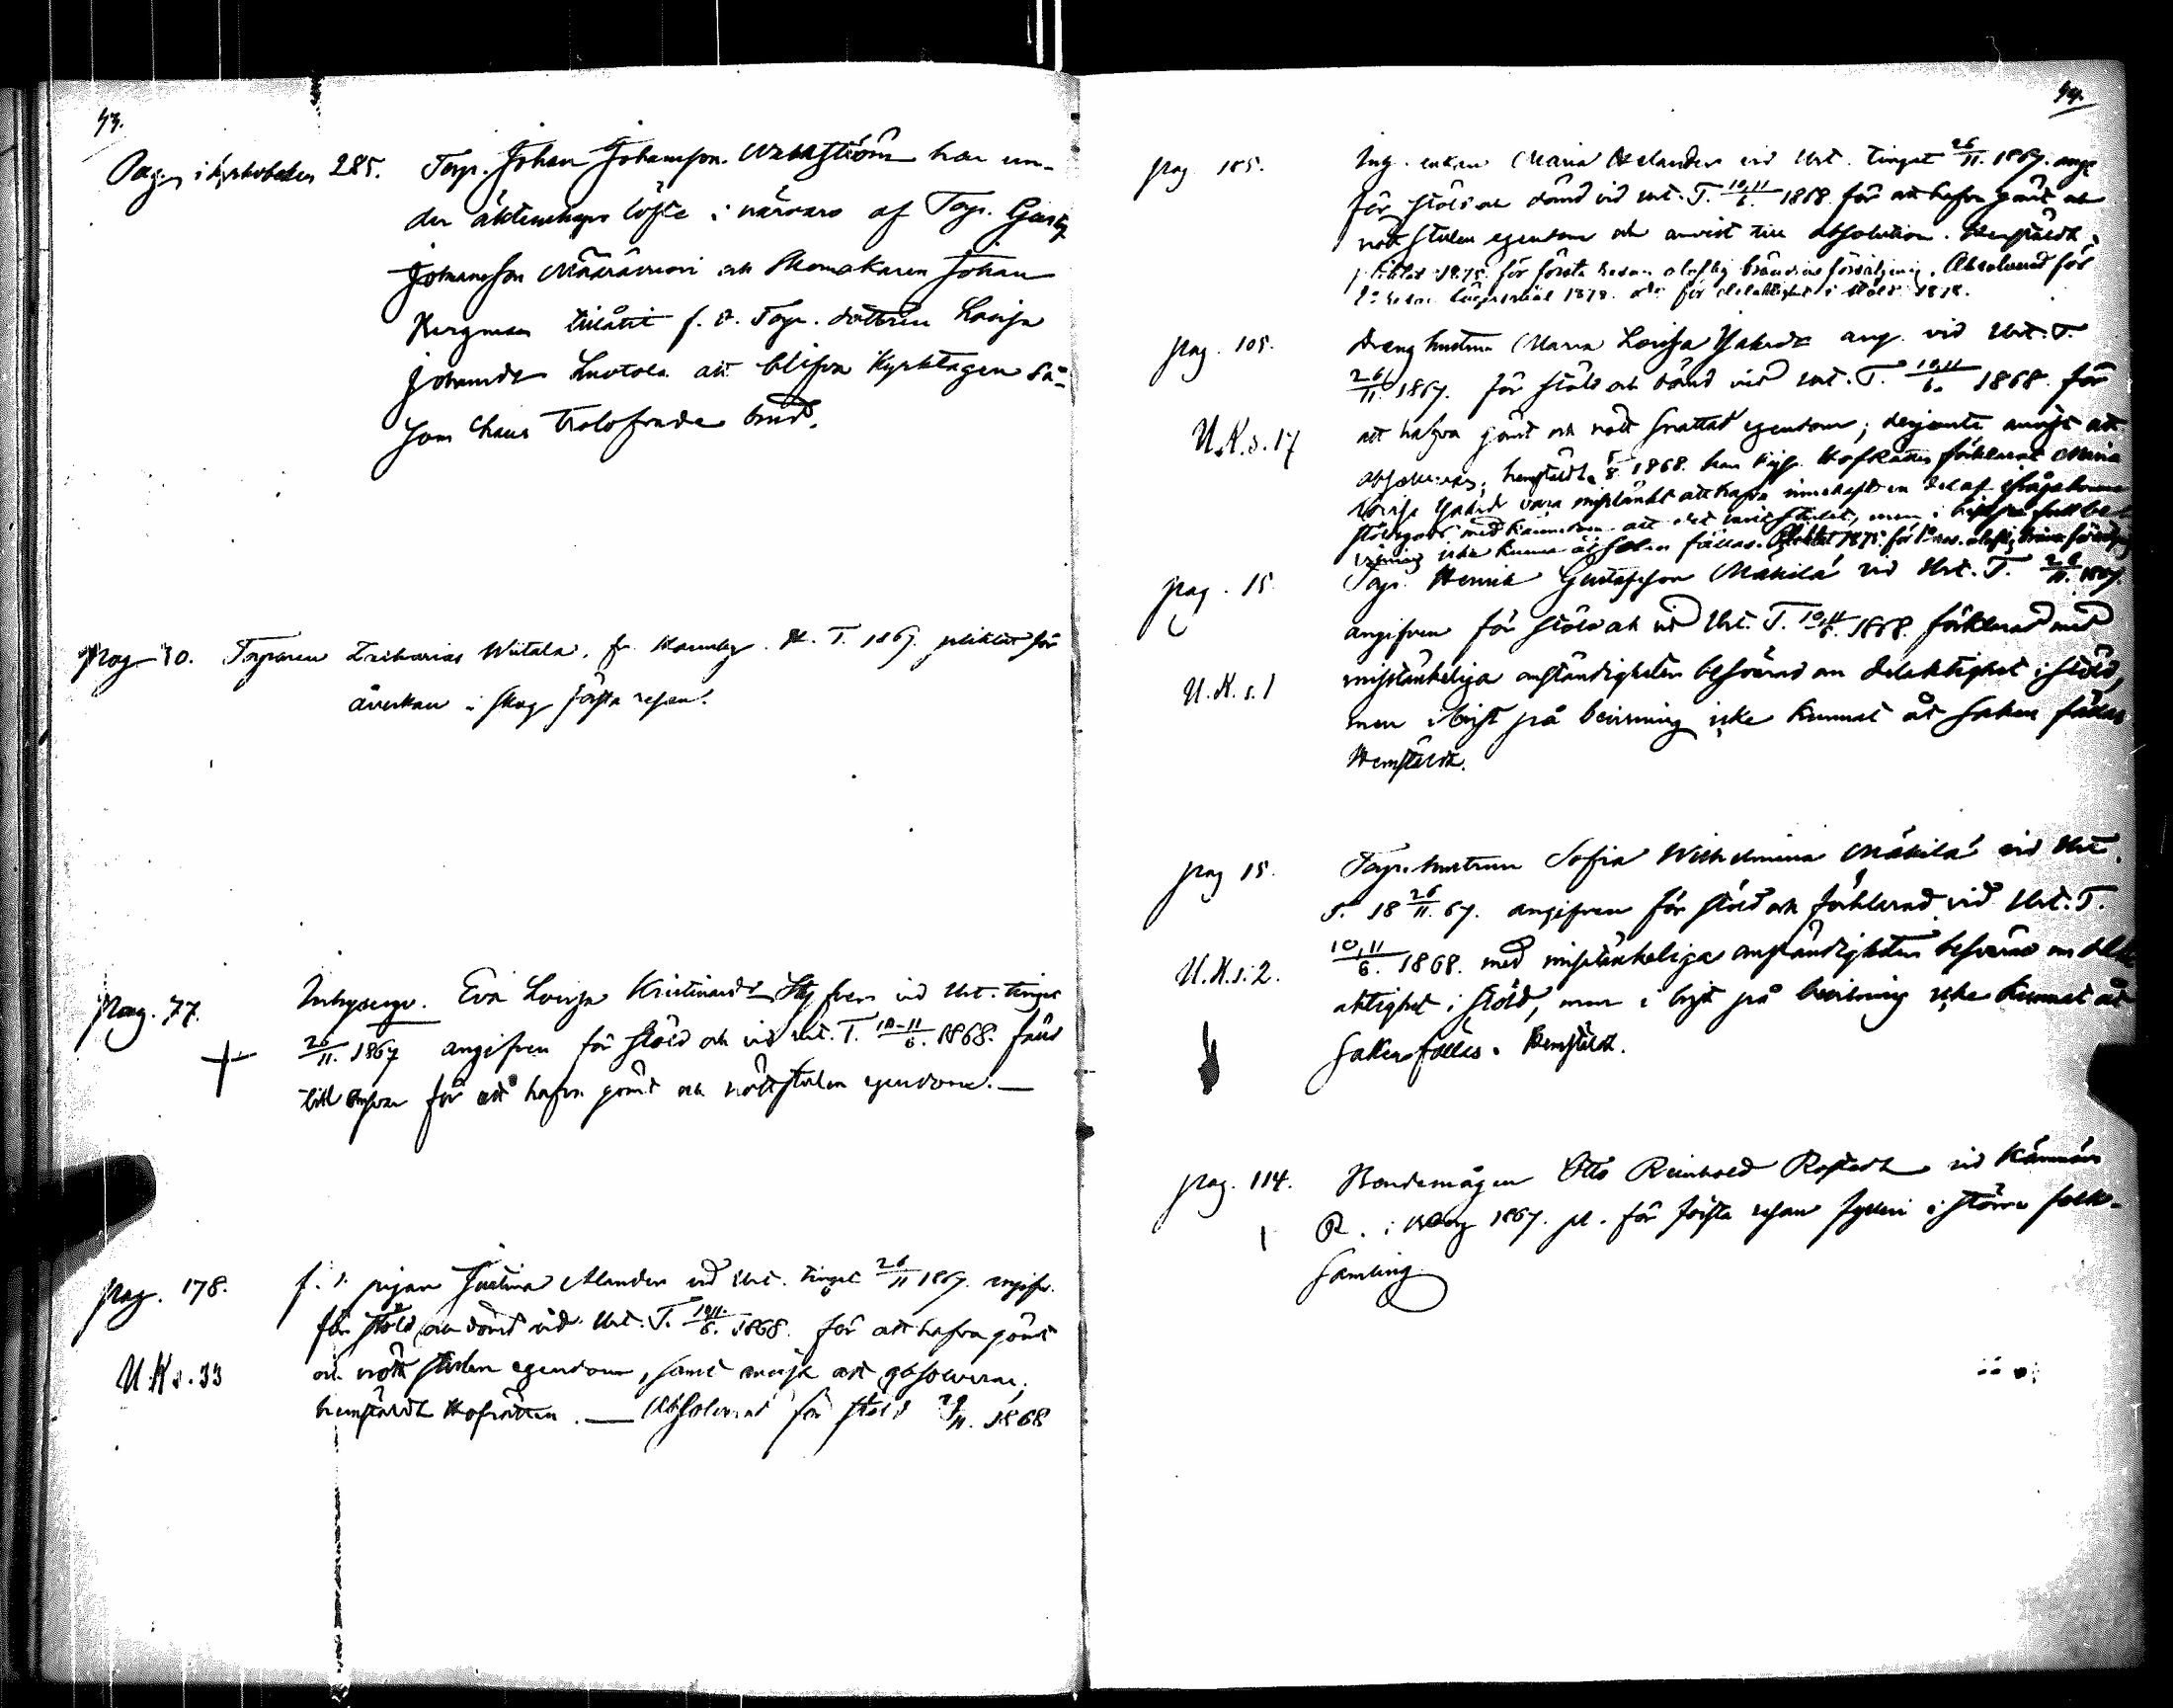 43.
Pag. i kyrkoboken 285. Torp. Johan Johansson Wahlström har un-
der äktenskaps löfte i närvaro af Torp. Gust.
Johansson Määrävuori och Skomakaren Johan
Bergman tillåtit f. d. Torp. dottern Lovisa
Johansdr Luotola att blifva kyrktagen så-
som hans trolofvade brud.
Pag 30. Torparen Zacharias Wiitala, H. T. 1867. pliktat för
åverkan i skog första resan.
Pag. 77. Inhysesp. Eva Lovisa Kristinasdr vid Urt. tinget
26/11. 1867 angifven för stöld och vid Urt. T. 10-11/6. 1868. fälld
till ansvar för att hafva gömt och nött stulen egendom.
pag. 178. f. d. pigan Justina Alander vid Urt. tinget 26/11 1867. angifv.
för stöld och dömd vid Urt. T. 10,11/6. 1868. för att hafva gömt
U.K.s.33 och nött stulen egendom, samt anvist att absolveras,
hemstäldt Hofrätten. — Absolverad för stöld 29/11. 1868
44.
pag. 185. Ing. enkan Maria Helander vid Urt. tinget 26/11. 1867. ang.
för stöld och dömd vid Urt. T. 10,11/6. 1868. för att hafva gömt och
nött stulen egendom och anvist till absolution. Hemstäldt.
Pliktat 1875. för första resan olaglig bränvins försäljning. Absolverad för
1878. för delaktighet i stöld 1878.
pag. 105. Dreng hustrun Maria Lovisa Jakobsdr ang. vid Urt. T.
26/11. 1867. för stöld och dömd vid Urt. T. 10,11/6. 1868. för
U.K.s.17 att hafva gömt och nött snattad egendom; derjemte anvist att
absolveras; hemstäldt. 5/8 1868. har Kejs. Hofrätten förklarat Maria
Lovisa Jakobsdr vara misstänkt att hafva innehaft en del af ifrågakomna
stöldgods med kännedom att det varit stulet, men i brist på full be-
visning icke kunna åt saken fällas. Pliktat 1875. för 1:a res. olaglig bränv. försäljning
pag. 15. Torp. Henrik Gustafsson Mäkilä vid Urt. T. 26/11. 1867.
angifven för stöld och vid Urt. T. 10,11/6. 1868. förklarad med
U.K.s.1 misstänkeliga omständigheter besvärad om delaktighet i stöld,
men i brist på bevisning icke kunnat åt saken fällas
Hemstäldt.
pag 15. Torp. hustrun Sofia Wilhelmina Mäkilä vid Urt.
T. 18 26/11. 67. angifven för stöld och förklarad vid Urt. T.
U.K.s.2. 10,11/6. 1868. med misstänkeliga omständigheter besvärad om del-
aktighet i stöld, men i brist på bevisning icke kunnat åt
saken fällas. Hemstäldt.
pag. 114. Bondemågen Otto Reinhold Rostedt vid Kämnärs
R. i 1867. pl. för första resan fylleri i större folk-
samling